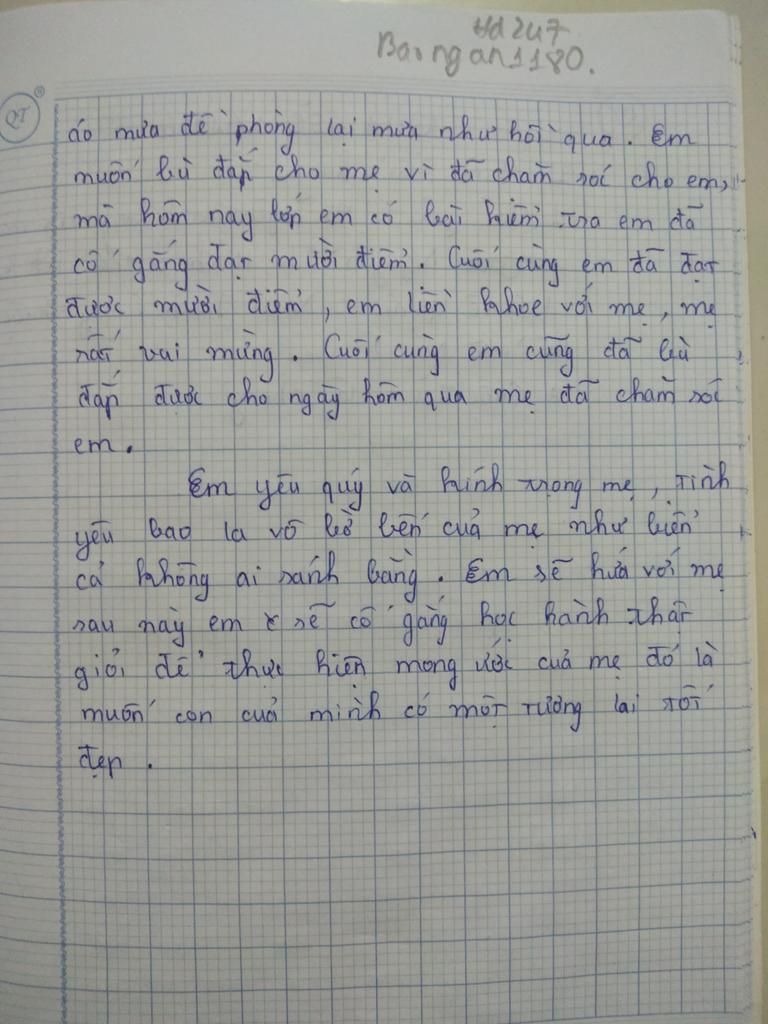 Hd247
Baongan1180.
QT
áo mưa để phòng lại mưa như hồi qua. Em
muốn bù đắp cho mẹ vì đã chăm sóc cho em,
mà hôm nay lớp em có bài kiểm tra em đã
cố gắng đạt mười điểm. Cuối cùng em đã đạt
được mười điểm, em liền khoe với mẹ, mẹ
rất vui mừng. Cuối cùng em cũng đã bù
đắp được cho ngày hôm qua mẹ đã chăm sóc
em.
Em yêu quý và kính trọng mẹ, tình
yêu bao la vô bờ bến của mẹ như biển
cả không ai sánh bằng. Em sẽ hứa với mẹ
sau này em sẽ cố gắng học hành thật
giỏi để thực hiện mong ước của mẹ đó là
muốn con của mình có một tương lai tốt
đẹp.